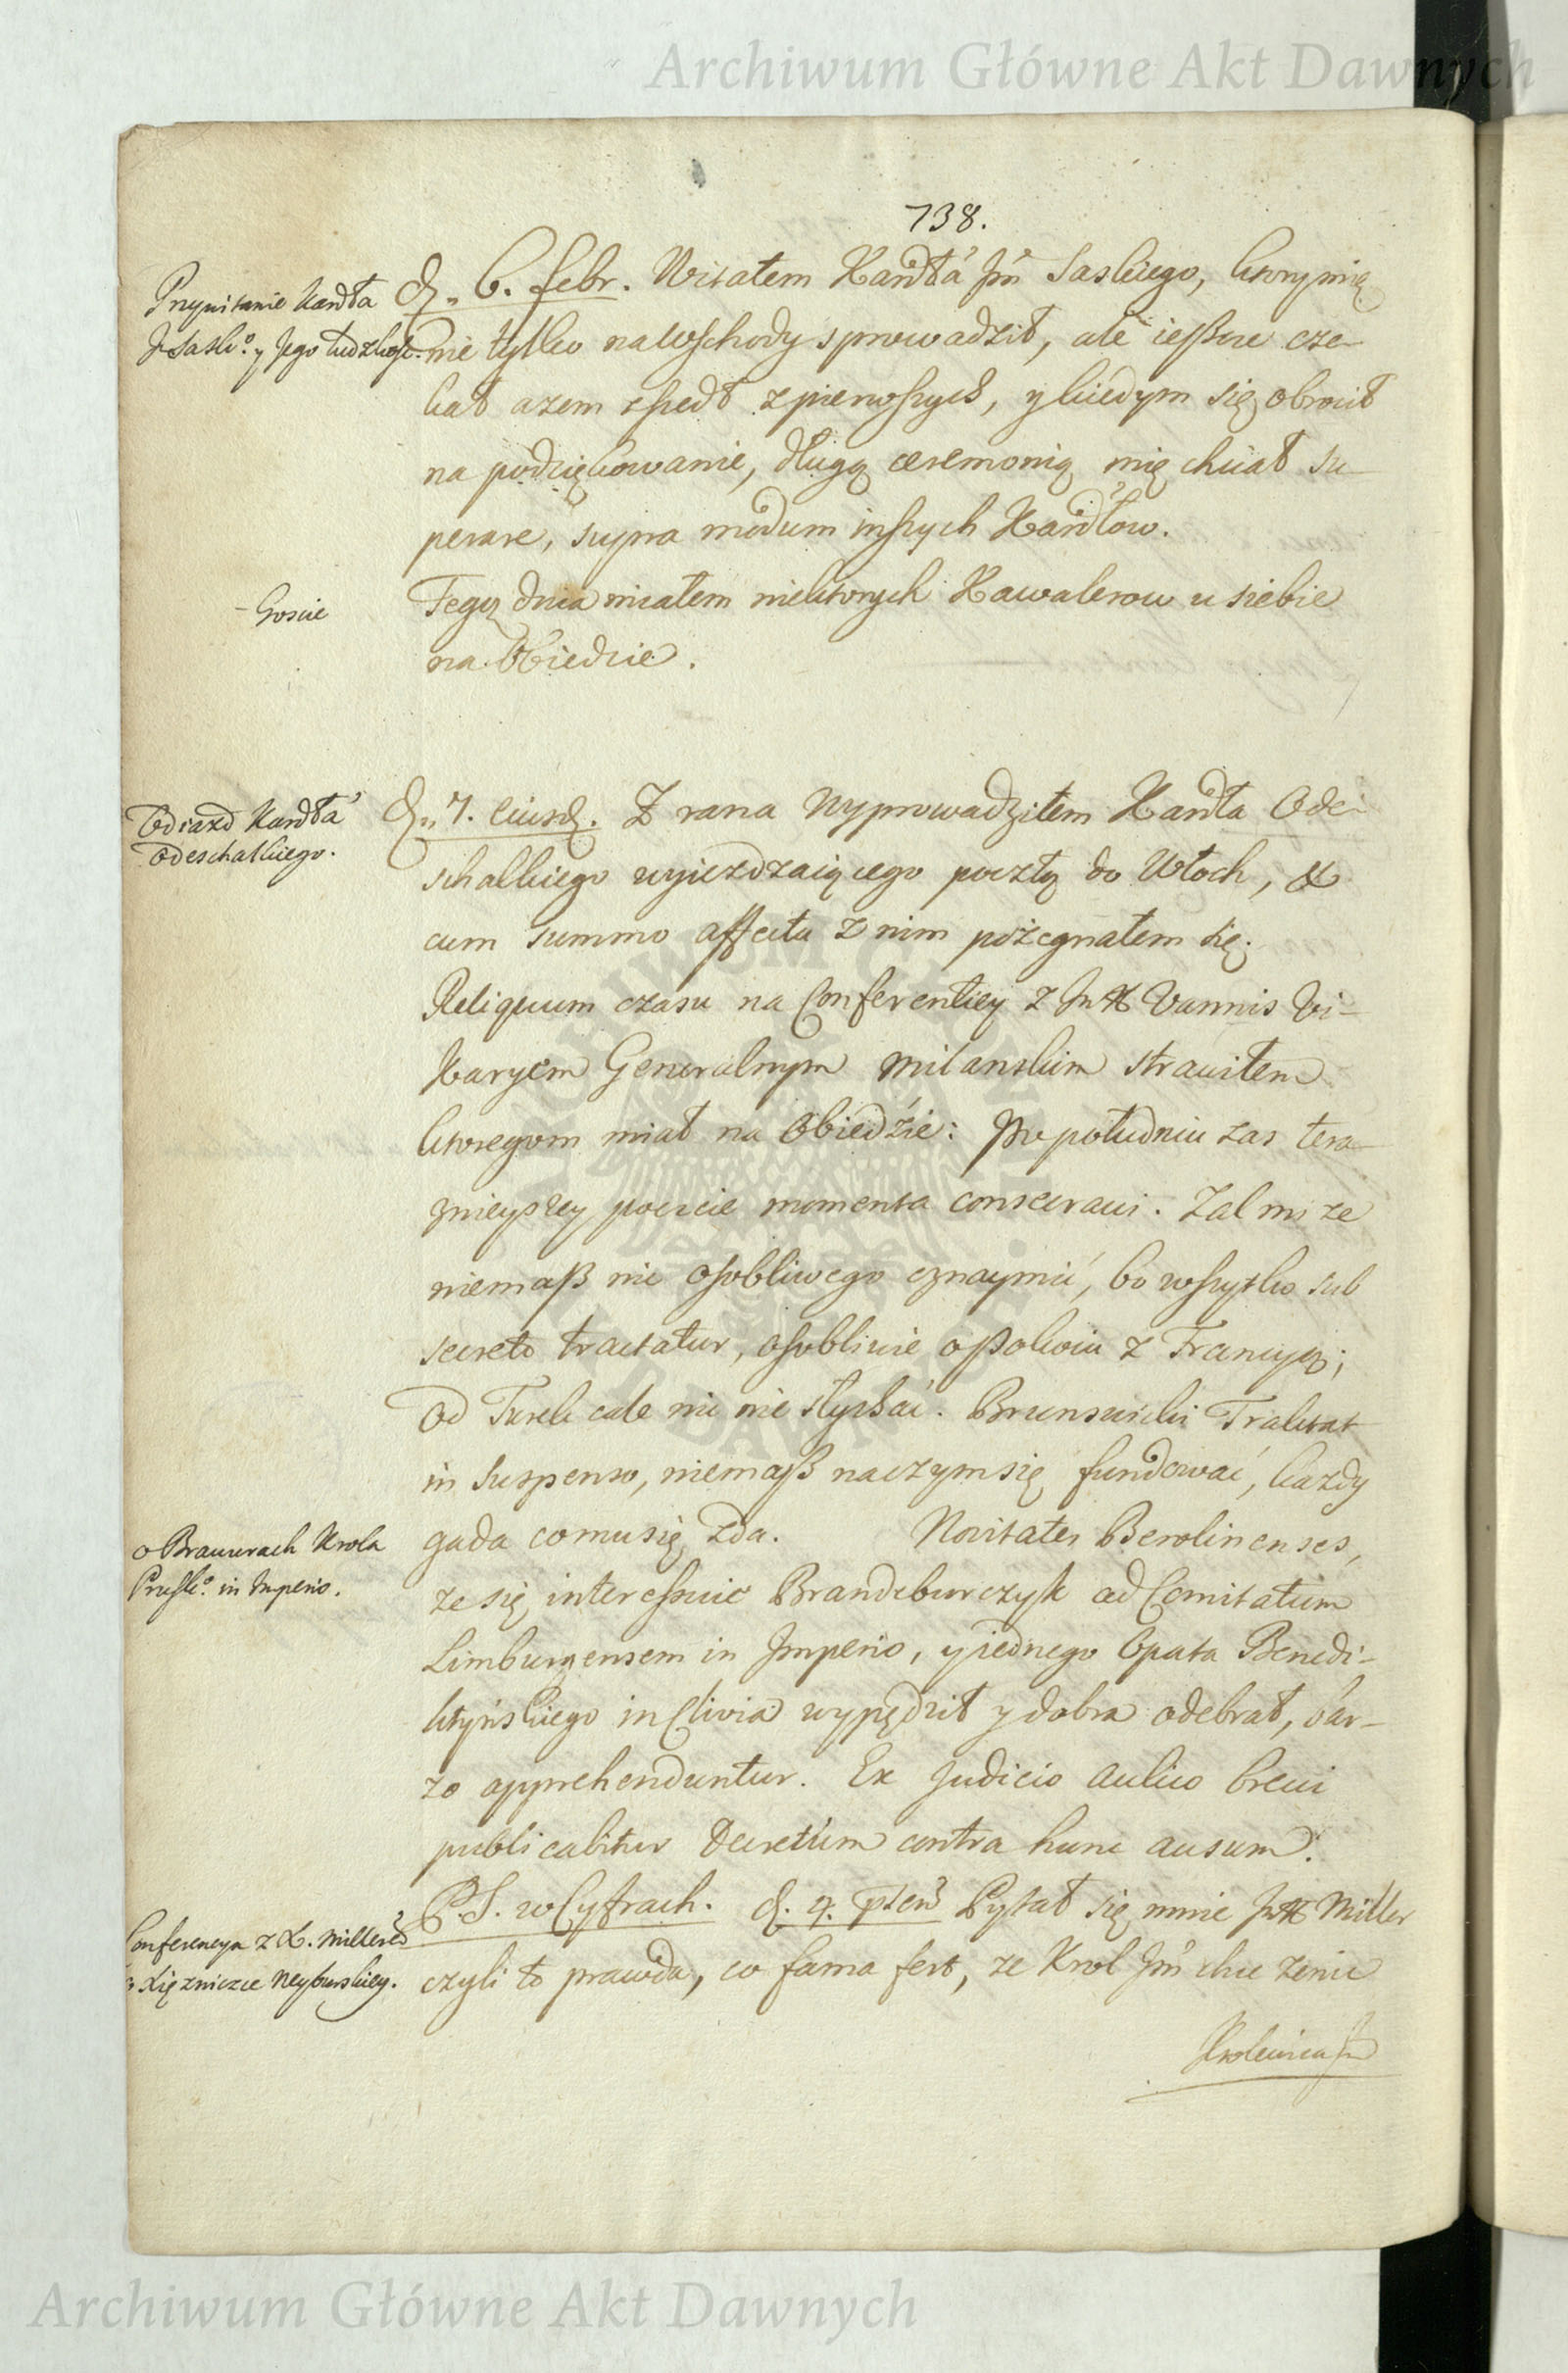 Archiwum Główne Akt Dawnych
738.
Przywitanie Kardła
J Saskº y Jego ludzkość.
d. 6. febr. Witałem Kardła Jm Saskiego, ktory mię
nie tylko na Wschody sprowadził, ale ieszcze cze-
kał azem zszedł z pierwszych, y kiedym się obrocił
na podziękowanie, długą ceremonią mię chciał su-
perare, supra modum inszych Kardłow.
- Goscie
Tegoz dnia miałem niektorych Kawalerow u siebie
na Obiedzie.
Odiazd Kardła
Odeschalkiego.
d. 7. eiusd. Z rana Wyprowadziłem Kardła Ode-
schalkiego wyiezdzaiącego pocztą do Włoch, &
cum summo affectu z nim pożegnałem się.
Reliquum czasu na Conferentiey z Jm X Vannis Wi-
karyem Generalnym Milanskim strawiłem
ktoregom miał na Obiedzie: Po południu zas tera-
znieyszey poczcie momenta consecravi. Zal mi ze
niemasz nic osobliwego oznaymić, bo wszytko sub
secreto tractatur, osobliwie o Pokoiu z Francyą;
Od Turek cale nic nie słychać. Brunswicki Traktat
in suspenso, niemasz na czym się fundować, kazdy
gada co mu się zda. Novitates Berolinenses,
o Brawurach Krola
Pruskº in Imperio.
ze się interessuie Brandeburczyk ad Comitatum
Limburgensem in Imperio, y jednego Opata Benedi-
ktyńskiego in Clivia wypędził y dobra odebrał, bar-
zo apprehenduntur. Ex Judicio Aulico brevi
publicabitur Decretum contra hunc ausum.
Conferencya z X. Millerē
o Xiężniczce Neyburskiey.
P.S. w Cyfrach. d. 4. pten Pytał się mnie Jm X Miller
czyli to prawda, co fama fert, ze Krol Jm chce zenic
Krolewica Jm
Archiwum Główne Akt Dawnych